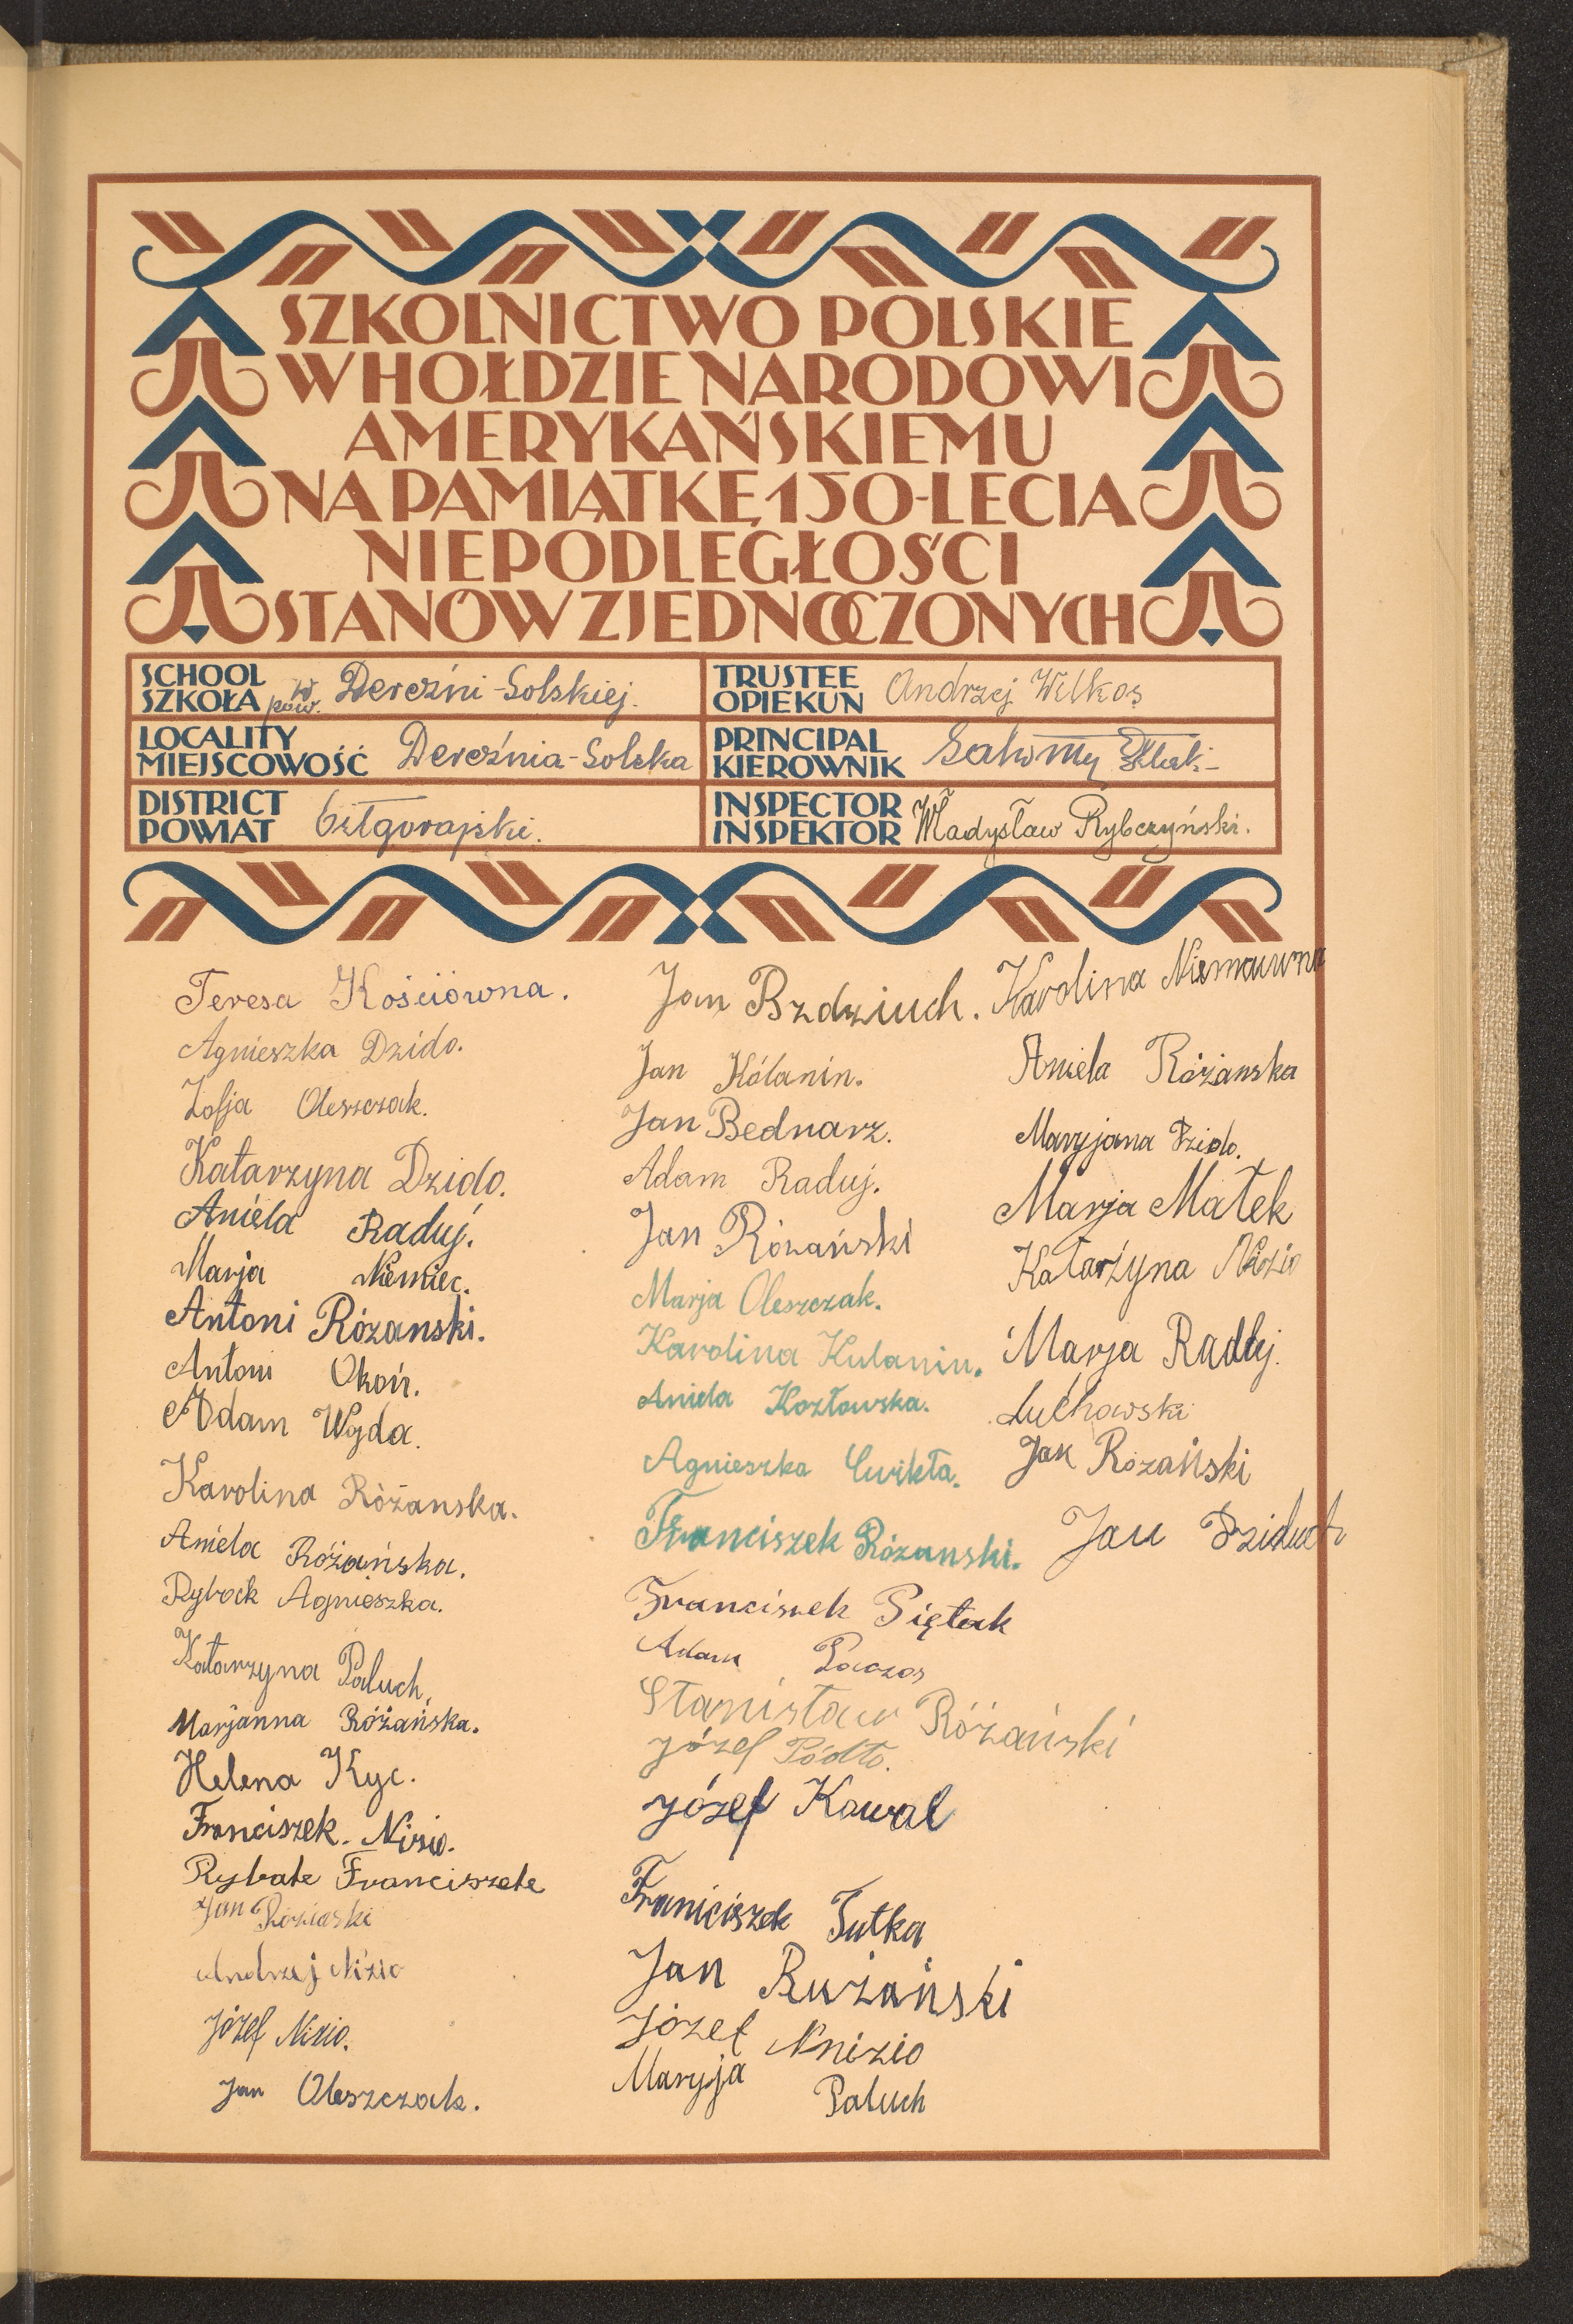 SZKOLNICTWO POLSKIE
W HOŁDZIE NARODOWI
AMERYKAŃSKIEMU
NA PAMIĄTKĘ 150-LECIA
NIEPODLEGŁOŚCI
STANÓW ZJEDNOCZONYCH
SCHOOL
SZKOŁA pow. w Dereźni-Solskiej.
TRUSTEE
OPIEKUN Andrzej Wilkos
LOCALITY
MIEJSCOWOŚĆ Dereźnia-Solska
PRINCIPAL
KIEROWNIK
DISTRICT
POWIAT biłgorajski.
INSPECTOR
INSPEKTOR Władysław Rybczyński.
Teresa Kościówna.
Agnieszka Dzido.
Zofja Oleszczak.
Katarzyna Dzido.
Aniela Raduj.
Marja Niemiec.
Antoni Rózanski.
Antoni Okoń.
Adam Wojda.
Karolina Różanska.
Aniela Różańska.
Ryback Agnieszka.
Katarzyna Paluch,
Marjanna Różańska.
Helena Kyc.
Franciszek. Nizio.
Rybak Franciszek
Jan
Andrzej Nizio
Józef Nizio.
Jan Oleszczak.
Jan Bzdziuch.
Jan Kólanin.
Jan Bednarz.
Adam Raduj.
Jan Rózański
Marja Oleszczak.
Karolina Kulanin.
Aniela Kozłowska.
Agnieszka Ćwikła.
Franciszek Rózanski.
Franciszek Piętak
Adam Paczos
Stanisław Różański
Józef Pódło.
Józef Kowal
Franiciszek Tutka
Jan Rużański
Józef Nnizio
Maryja Paluch
Karolina
Aniela Różanska
Maryjana Dzido.
Marja Małek
Katarżyna Nizio
Marja Radłuj.
Luchowski
Jan Rózański
Jan Dziduch